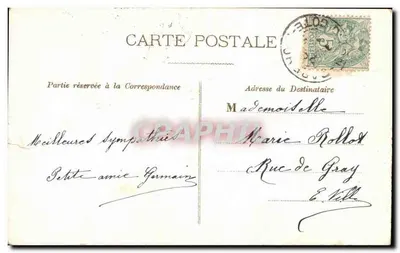 CARTE POSTALE
Partie réservée à la Correspondance
Adresse du Destinataire
Mademoiselle
Meilleures sympathies
Marie Rollot
Petite amie Germain
Rue de Gray
E. Ville
CARTHAPHILIE